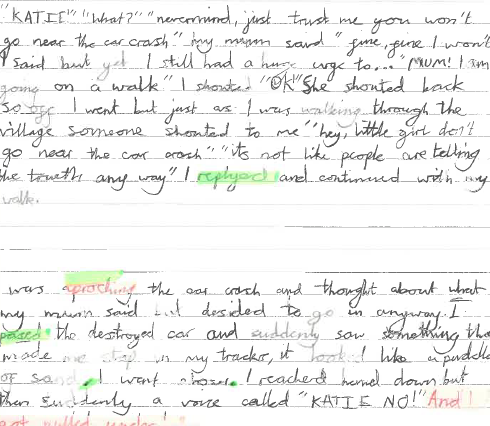 "KATIE" "What?" "nevermind, just trust me you won't
go near the car crash" my mum said "fine, fine I won't
I said but yet I still had a huge urge to..." "MUM! I am
going on a walk" I shouted "OK" She shouted back
so off I went but just as I was walking through the
village someone shouted to me "hey, little girl don't
go near the car crash" "it's not like people are telling
the trueth any way" I replyed and continued with my
walk.
was aproching the car crash and thought about what
my mum said but decided to go in anyway. I
pased the destroyed car and suddenly saw something tha
made me stop in my tracks, it looked like a puddle
of sand. I went closer. I reached hand down but
then suddenly a voice called "KATIE NO!" And I
got pulled under!